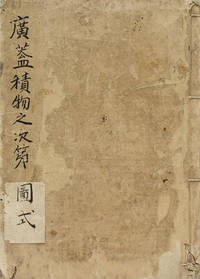 廣蓋積物之次第
圖式